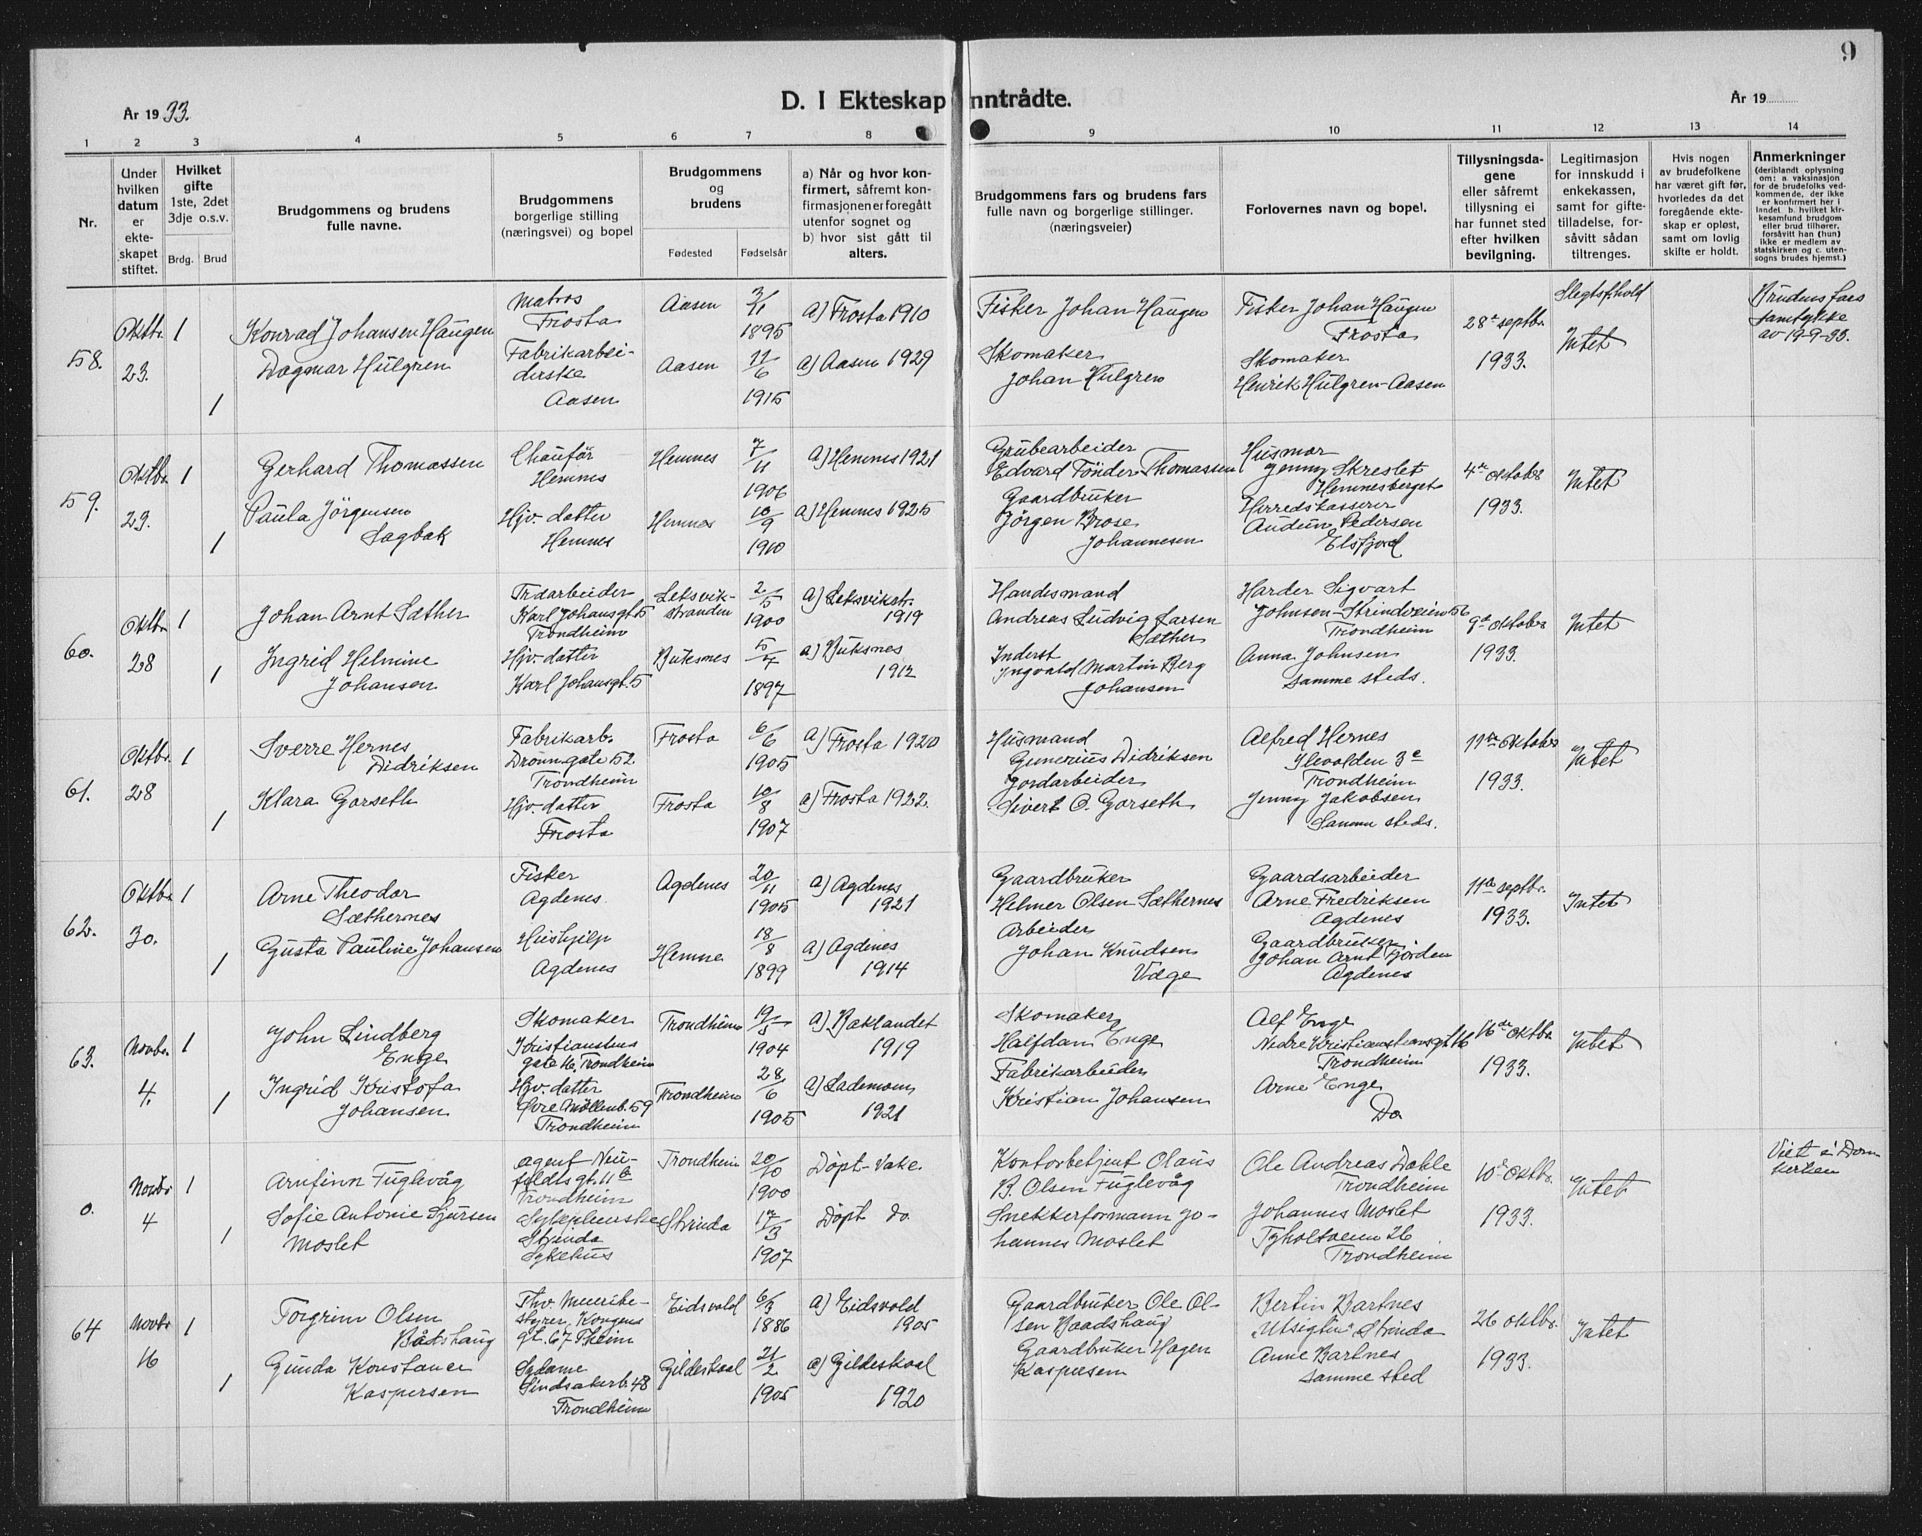 9
D. I Ekteskap inntrådte.
År 1933.
År 19
1 2 3 4 5 6 7 8 9 10 11 12 13 14
Nr.
Under hvilken datum er ekteskapet stiftet.
Hvilket gifte 1ste, 2det 3dje o.s.v.
Brdg. Brud
Brudgommens og brudens fulle navne.
Brudgommens borgerlige stilling (næringsvei) og bopel
Brudgommens og brudens
Fødested Fødselsår
a) Når og hvor konfirmert, såfremt konfirmasjonen er foregått utenfor sognet og b) hvor sist gått til alters.
Brudgommens fars og brudens fars fulle navn og borgerlige stillinger. (næringsveier)
Forlovernes navn og bopel.
Tillysningsdagene eller såfremt tillysning ei har funnet sted efter hvilken bevilgning.
Legitimasjon for innskudd i enkekassen, samt for giftetilladelse, forsåvitt sådan tiltrenges.
Hvis nogen av brudefolkene har været gift før, hvorledes da det foregående ekteskap er opløst, samt om lovlig skifte er holdt.
Anmerkninger (deriblandt oplysning om: a. vaksinasjon for de brudefolks vedkommende, der ikke er konfirmert her i landet. b. hvilket kirkesamfund brudgom eller brud tilhører, forsåvitt han (hun) ikke er medlem av statskirken og c. utensogns brudes hjemst.)
58.
Oktbr. 23.
1
1
Konrad Johansen Haugen
Dagmar Hulgren
Matros
Frosta
Fabrikarbei-
derske
Aasen
Aasen
Aasen
2/11
1895
11/6
1915
a) Frosta 1910
a) Aasen 1929
Fisker Johan Haugen
Skomaker
Johan Hulgren
Fisker Johan Haugen
Frosta
Skomaker
Henrik Hulgren-Aasen
28de septbr.
1933.
Slegtsfhold
Intet
Brudens fars
samtykke
av 19-9-33.
59.
Oktbr. 23.
1
1
Gerhard Thomassen
Paula Jörgensen
Sagbak
Chauför
Hemnes
Hjv. datter
Hemnes
Hemnes
Hemnes
7/11
1906
10/9
1910
a) Hemnes 1921
a) Hemnes 1925
Grubearbeider
Edvard Tönder Thomassen
Gaardbruker
Jörgen Brose
Johannesen
Husmor
Jenny Skreslet
Hemnesberget
Herredskasserer
Audun Pedersen
Elsfjord
4de oktober
1933.
Intet
60.
Oktbr. 28
1
1
Johan Arnt Sæther
Ingrid Helmine
Johansen
Træarbeider
Karl Johansgt. 5
Trondheim
Hjv. datter
Karl Johansgt. 5
Leksvik-
stranden
Buksnes
2/5
1900
5/4
1897
a) Leksvikstr.
1919
a) Buksnes
1912
Handesmand
Andreas Ludvig Larsen
Sæther
Inderst
Ingvald Martin Berg
Johansen
Harder Sigvart
Johnsen-Strindveien 56
Trondheim
Anna Johnsen
samme steds.
9de oktober
1933.
Intet
61.
Oktbr. 28
1
1
Sverre Hernes
Didriksen
Klara Gorseth
Fabrikarb.
Dronn.gate 52
Trondheim
Hjv. datter
Frosta
Frosta
Frosta
6/6
1905
10/8
1907
a) Frosta 1920
a) Frosta 1922.
Husmand
Gunerius Didriksen
Jordarbeider
Sivert O. Gorseth
Alfred Hernes
Ilevolden 3e
Trondheim
Jenny Jakobsen
Samme steds.
11te oktober
1933.
Intet
62.
Oktbr. 30.
1
1
Arne Theodor
Sæthernes
Gusta Pauline Johansen
Fisker
Agdenes
Hushjelp
Agdenes
Agdenes
Hemne
20/11
1905
18/8
1899
a) Agdenes
1921
a) Agdenes
1914
Gaardbruker
Helmer Olsen Sæthernes
Arbeider
Johan Knudsen
Væge
Gaardsarbeider
Arne Fredriksen
Agdenes
Gaardbruker
Johan Arnt Fjorden
Agdenes
11te septbr.
1933.
Intet
63.
Novbr. 4.
1
1
John Lindberg
Enge
Ingrid Kristofa
Johansen
Skomaker
Kristianstens
gate 16, Trondheim
Hjv. datter
Övre Möllenb. 59
Trondheim
Trondheim
Trondheim
19/5
1904
28/6
1905
a) Baklandet
1919
a) Lademoen
1921
Skomaker
Halfdan Enge
Fabrikarbeider
Kristian Johansen
Alf Enge
Nedre Kristianstensgt 16
Trondheim
Arne Enge
Do
16de oktbr.
1933.
Intet
0.
Novbr 4
1
1
Arnfinn Fuglevåg
Sofie Antonie Sjursen
Moslet
Agent Neu-
feldtsgt. 11 b
Trondheim
Sykepleierske
Strinda
Sykehus
Trondheim
Strinda
20/10
1900
17/3
1907
Döpt-Vake.
Döpt do.
Kontorbetjent Olaus
B. Olsen Fuglevåg
Snekkerformann Jo-
hannes Moslet
Ole Andreas Dahle
Trondheim
Johannes Moslet
Tyholtveien 26
Trondheim
10de oktbr.
1933.
Intet
Viet i Dom
kirken
64
Novbr 16
1
1
Torgrim Olsen
Bådshaug
Gunda Konstance
Kaspersen
Fhv. Meieribe-
styrer, Kongens
gt. 67 Theim
Sydame
Lindsakerb. 48
Trondheim
Eidsvold
Gildeskaal
6/3
1886
21/2
1905
a) Eidsvold
1905
a) Gildeskaal
1920
Gaardbruker Ole Ol-
sen Baadshaug
Gaardbruker Hagen
Kaspersen
Bertin Bartnes
"Utsigten" Strinda
Anne Bartnes
samme sted
26 oktbr.
1933.
Intet